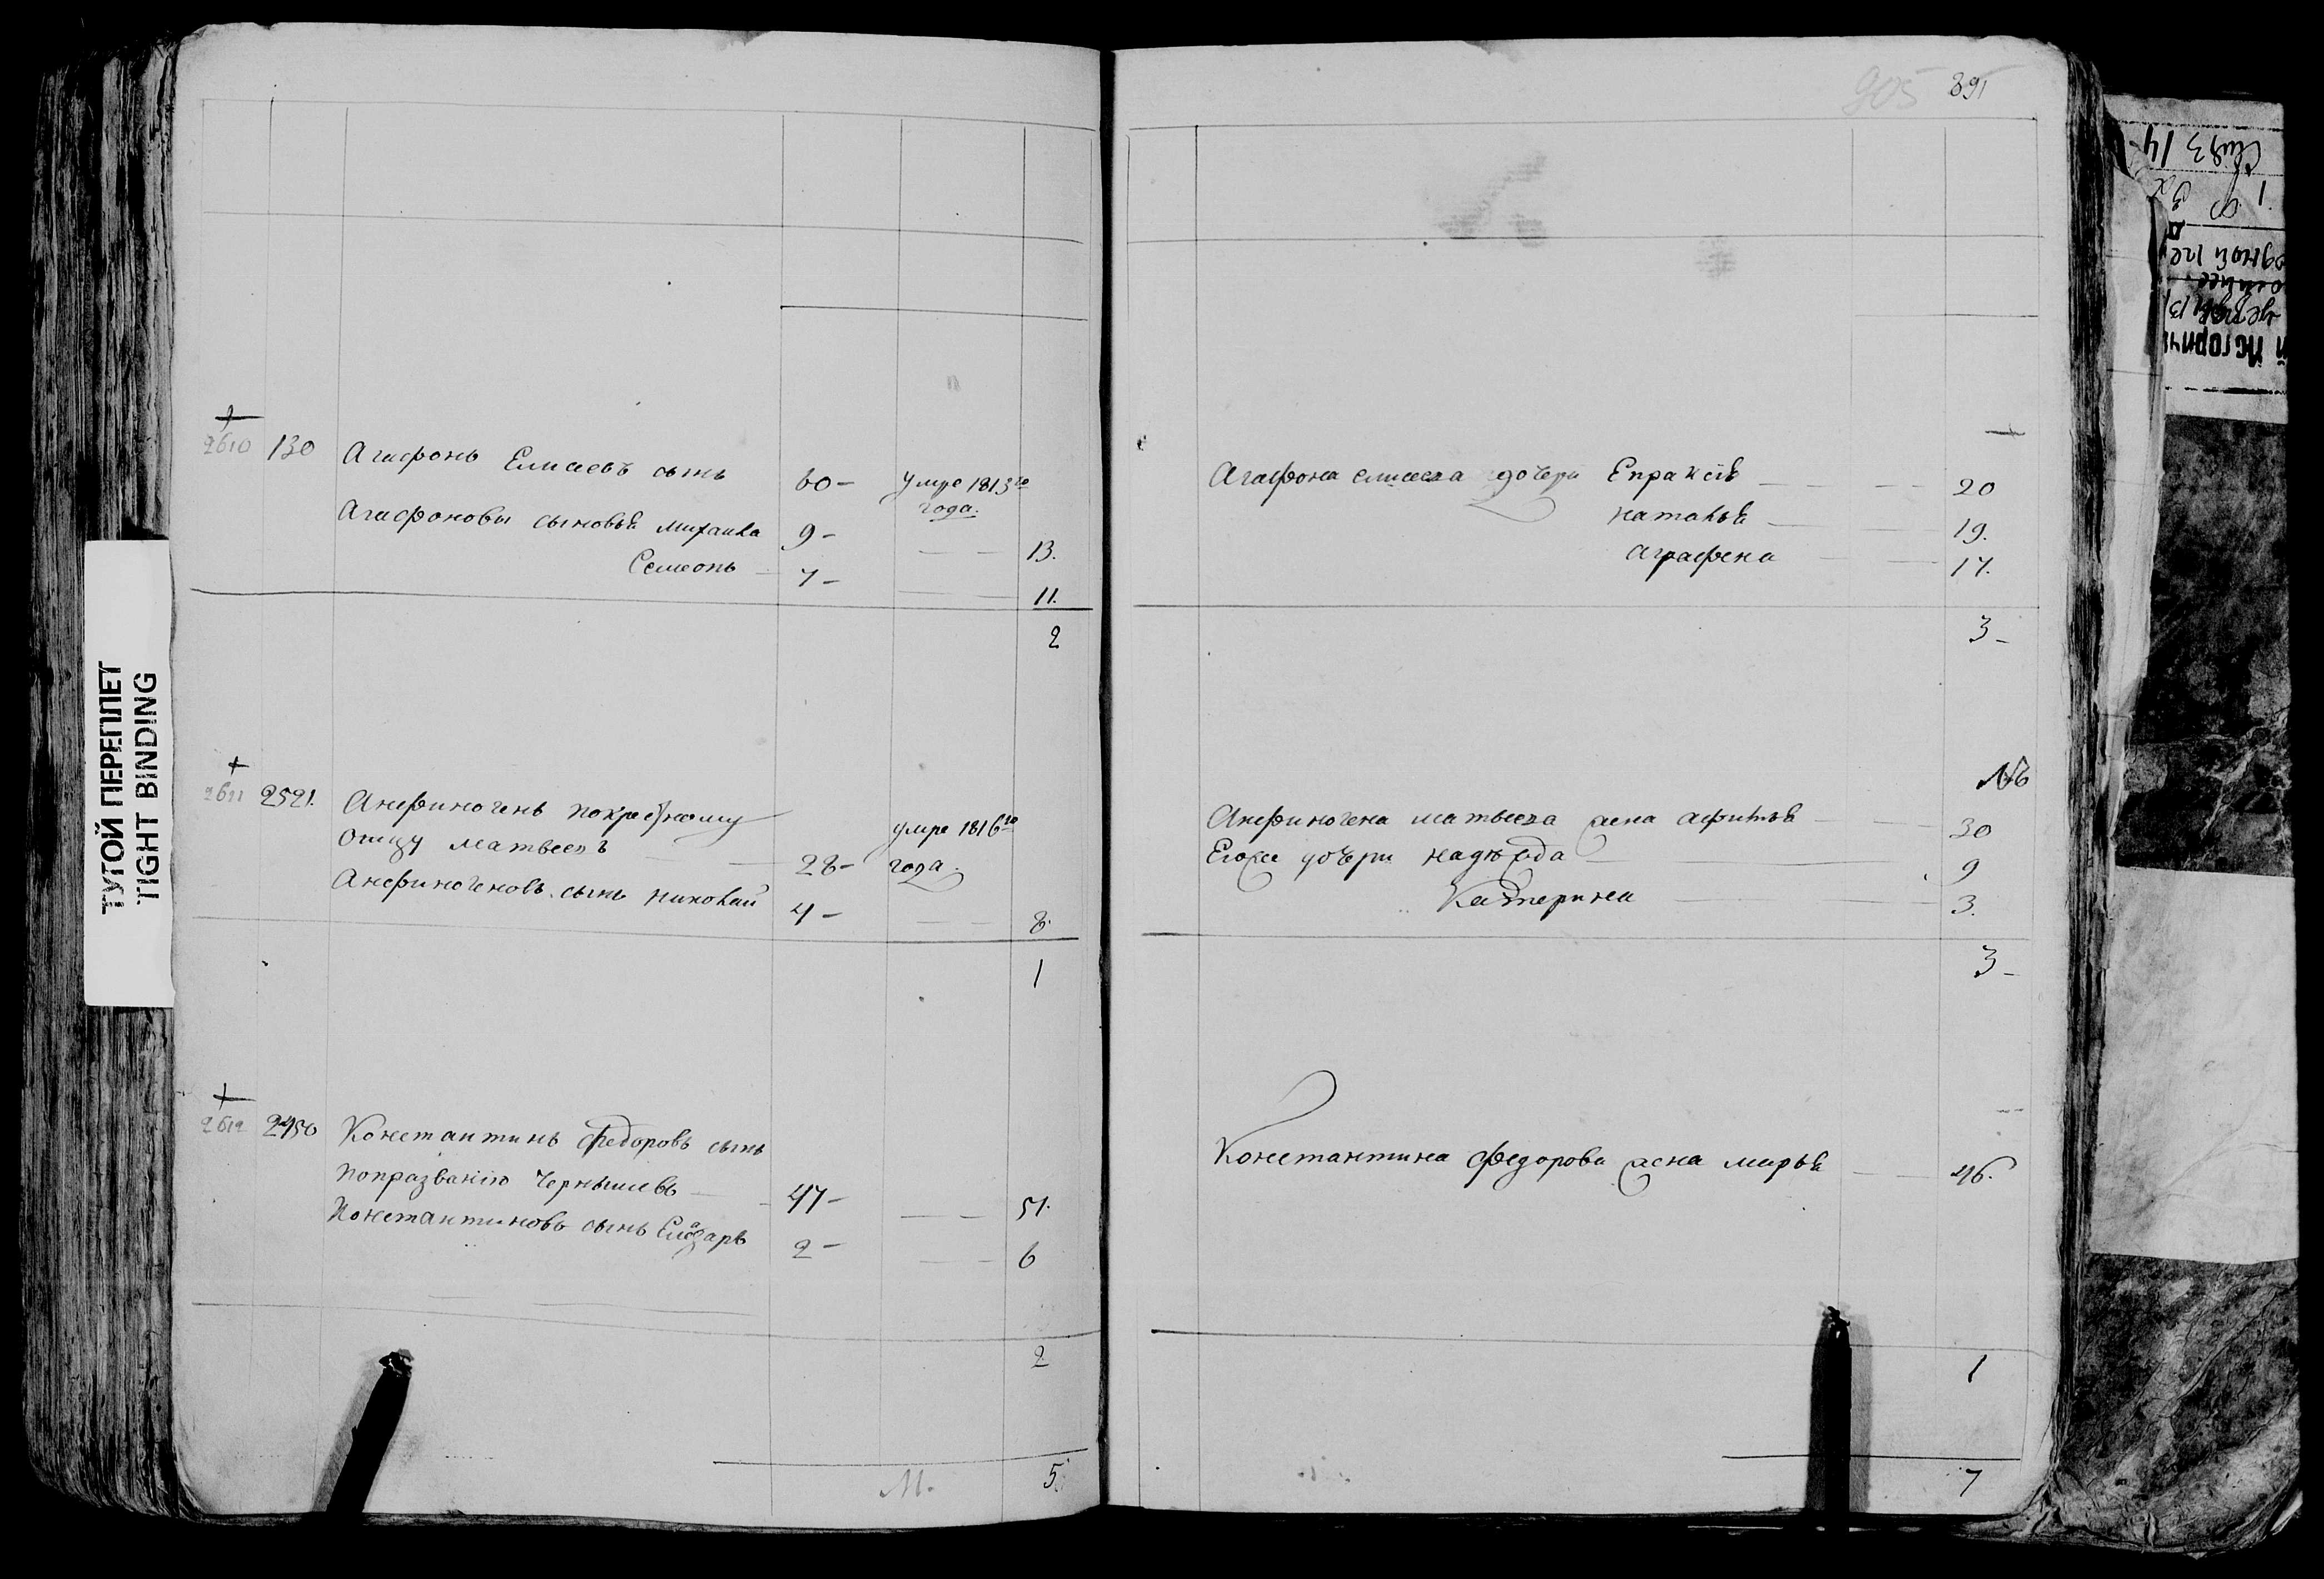 ТУГОЙ ПЕРЕПЛЕТ
TIGHT BINDING
2610 130 Агафонъ Елисеевъ сынъ 60 – умре 1813го
года.
Агафоновы сыновья михаила 9 – 13.
Семеонъ 7 – 11.
2
2611 2521. Анфиногенъ покрестному
отцу матвеевъ 28 – умре 1816го
года.
Анфиногеновъ сынъ николай 4 – 8.
1
2612 2450 Константинъ Федоровъ сынъ
попразванію Чернышевъ 47 – 51.
Константиновъ сынъ Елеазаръ 2 – 6
2
М. 5.
905 891
Агафона елисеева дочери Епраксія 20
наталья 19.
аграфена 17.
3 –
№
Анфиногена матвеева жена афимья 30
Егоже дочери надежда 9
Катерина 3.
3 –
Констант​ина федорова жена марья 46.
1
7